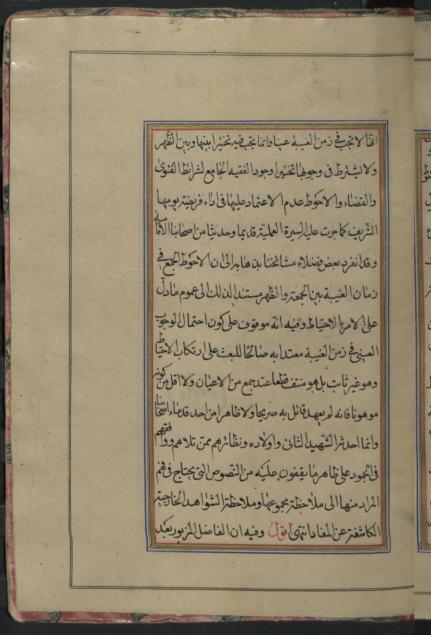 انها لا تجب في زمن الغيبة عينا وانما تجب فيه تخييرا بينها وبين الظهر
ولا يشترط في وجوبها تخييرا وجود الفقيه الجامع لشرائط الفتوى
والقضاء والاحوط عدم الاعتماد عليها في اداء فريضة يومها
الشريف كما جرت عليه السيرة العملية قديما وحديثا من اصحابنا الامامية
وقد انفرد بعض فضلاء مشائخنا بذهابه الى ان الاحوط الجمع في
زمان الغيبة بين الجمعة والظهر مستندا لذلك الى عموم ما دل
على الامر بالاحتياط وفيه انه موقوف على كون احتمال الوجوب
العيني في زمن الغيبة معتدا به صالحا للبعث على ارتكاب الاحتياط
وهو غير ثابت بل هو منتف قطعا عند جمع من الاعيان ولا اقل من كونه
موهونا فانه لم يعهد قائل به صريحا ولا ظاهرا من احد قدماء اصحابنا
وانما احدثه الشهيد الثاني واولاده ونظائرهم ممن تلاهم ووافقهم
في الجمود على ظاهر ما يقفون عليه من النصوص التي يحتاج في فهم
المراد منها الى ملاحظة مجموعها وملاحظة الشواهد الخارجية
الكاشفة عن المفاد انتهى اقول وفيه ان الفاضل المزبور بعد